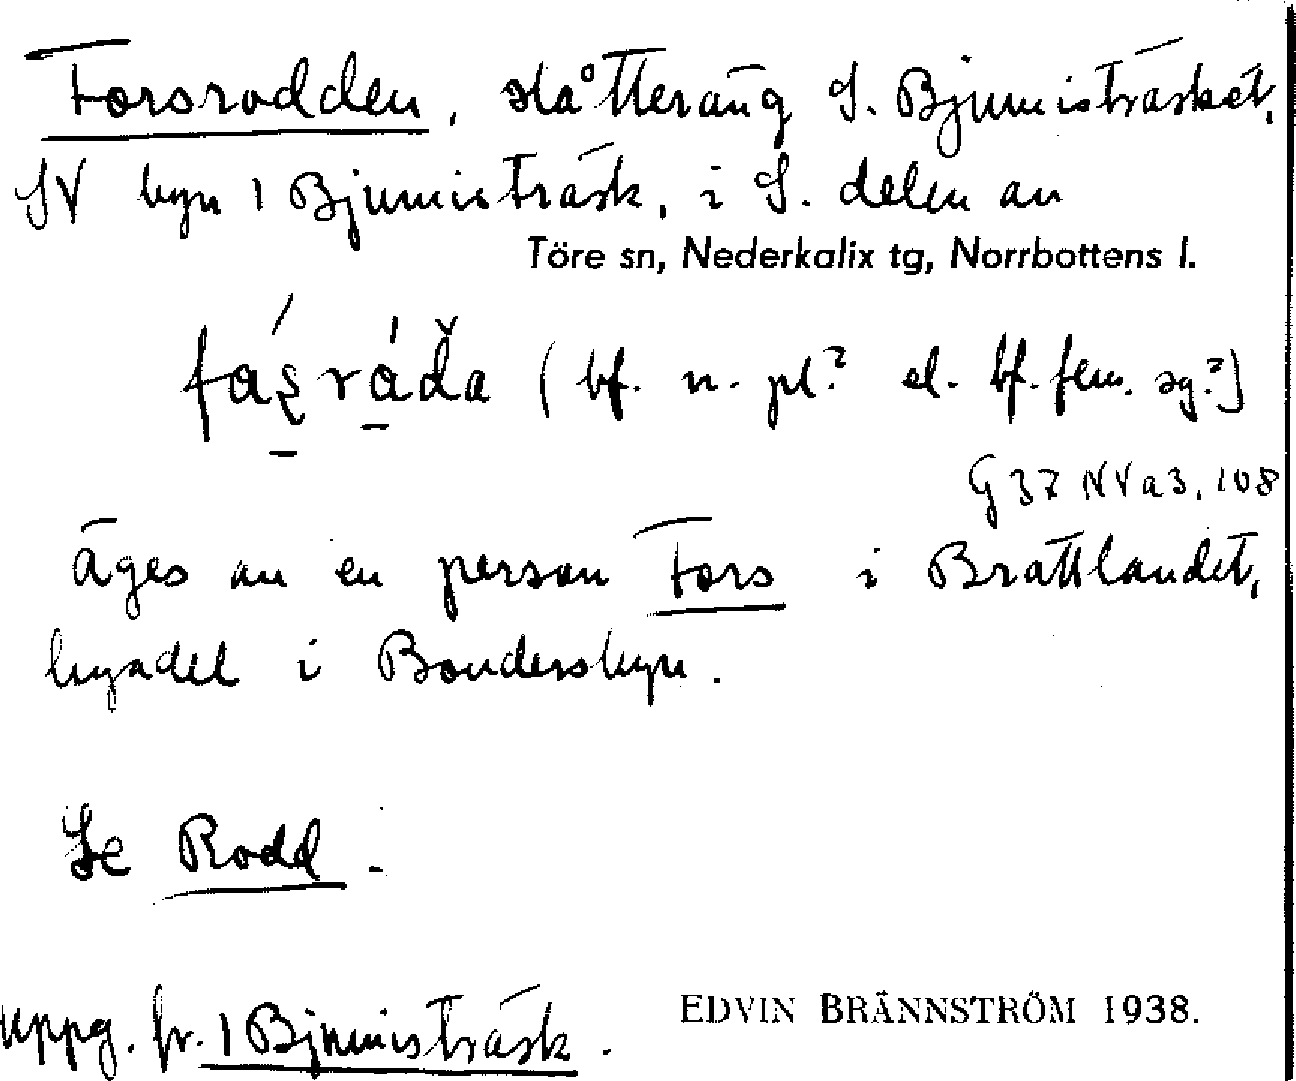 Forsrodden, slåtteräng S. Bjumisträsket,
SV byn 1 Bjumisträsk, i S. delen av
Töre sn, Nederkalix tg, Norrbottens l.
(bf. n. pl.? el. bf. fem. sg.?)
G 37 NV a3, 108
äges av en person Fors i Brattlandet,
byadel i Bondersbyn.
Se Rodd.
Uppg. fr. 1 Bjumisträsk.
EDVIN BRÄNNSTRÖM 1938.